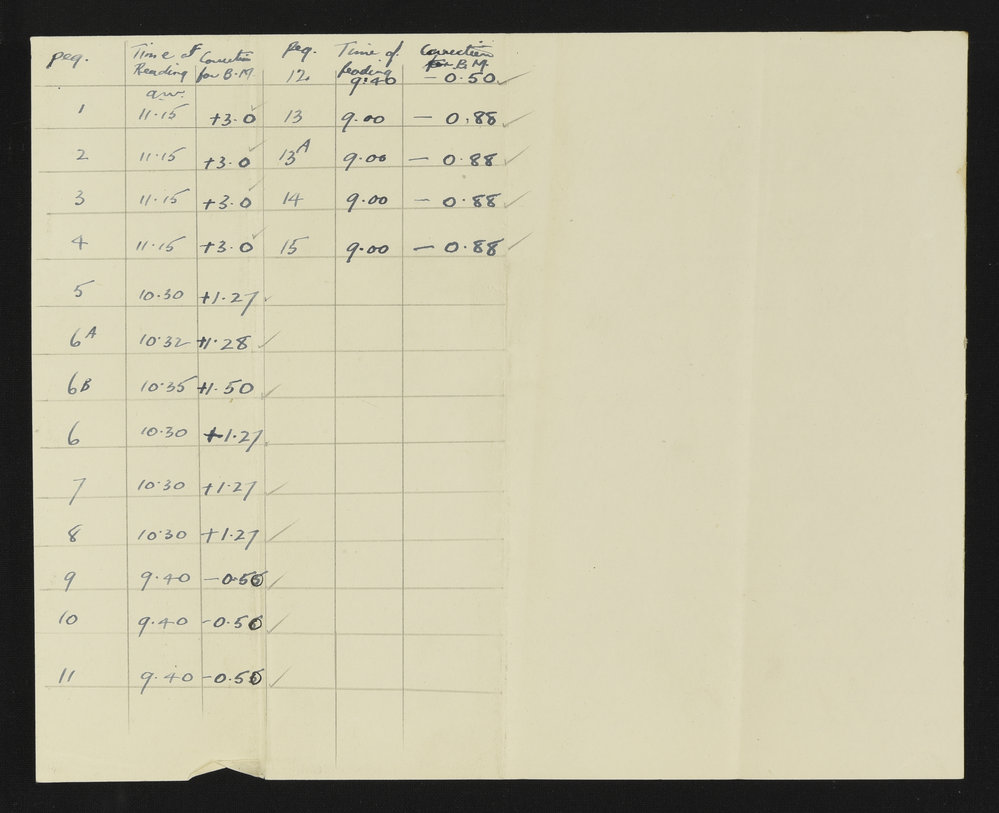 Peg. Time of Reading a.m. Correction for B.M. Peg. Time of Reading Correction for B.M.
12 9.40 - 0.50 ✓
1 11.15 +3.0 ✓ 13 9.00 - 0.88 ✓
2 11.15 +3.0 ✓ 13A 9.00 - 0.88 ✓
3 11.15 +3.0 ✓ 14 9.00 - 0.88 ✓
4 11.15 +3.0 ✓ 15 9.00 - 0.88 ✓
5 10.30 +1.27 ✓
6A 10.32 +1.28 ✓
6B 10.35 +1.50 ✓
6 10.30 +1.27
7 10.30 +1.27 ✓
8 10.30 +1.27 ✓
9 9.40 -0.50 ✓
10 9.40 -0.50 ✓
11 9.40 -0.50 ✓